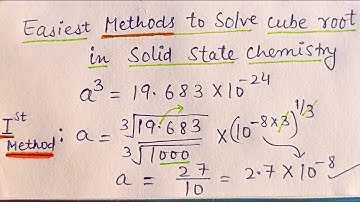 Easiest Methods to Solve cube root
in Solid State Chemistry
a³ = 19.683 × 10⁻²⁴
Iˢᵗ Method: a = ∛19.683 / ∛1000 × (10⁻⁸ˣ³)¹ᐟ³
a = 27/10 = 2.7 × 10⁻⁸